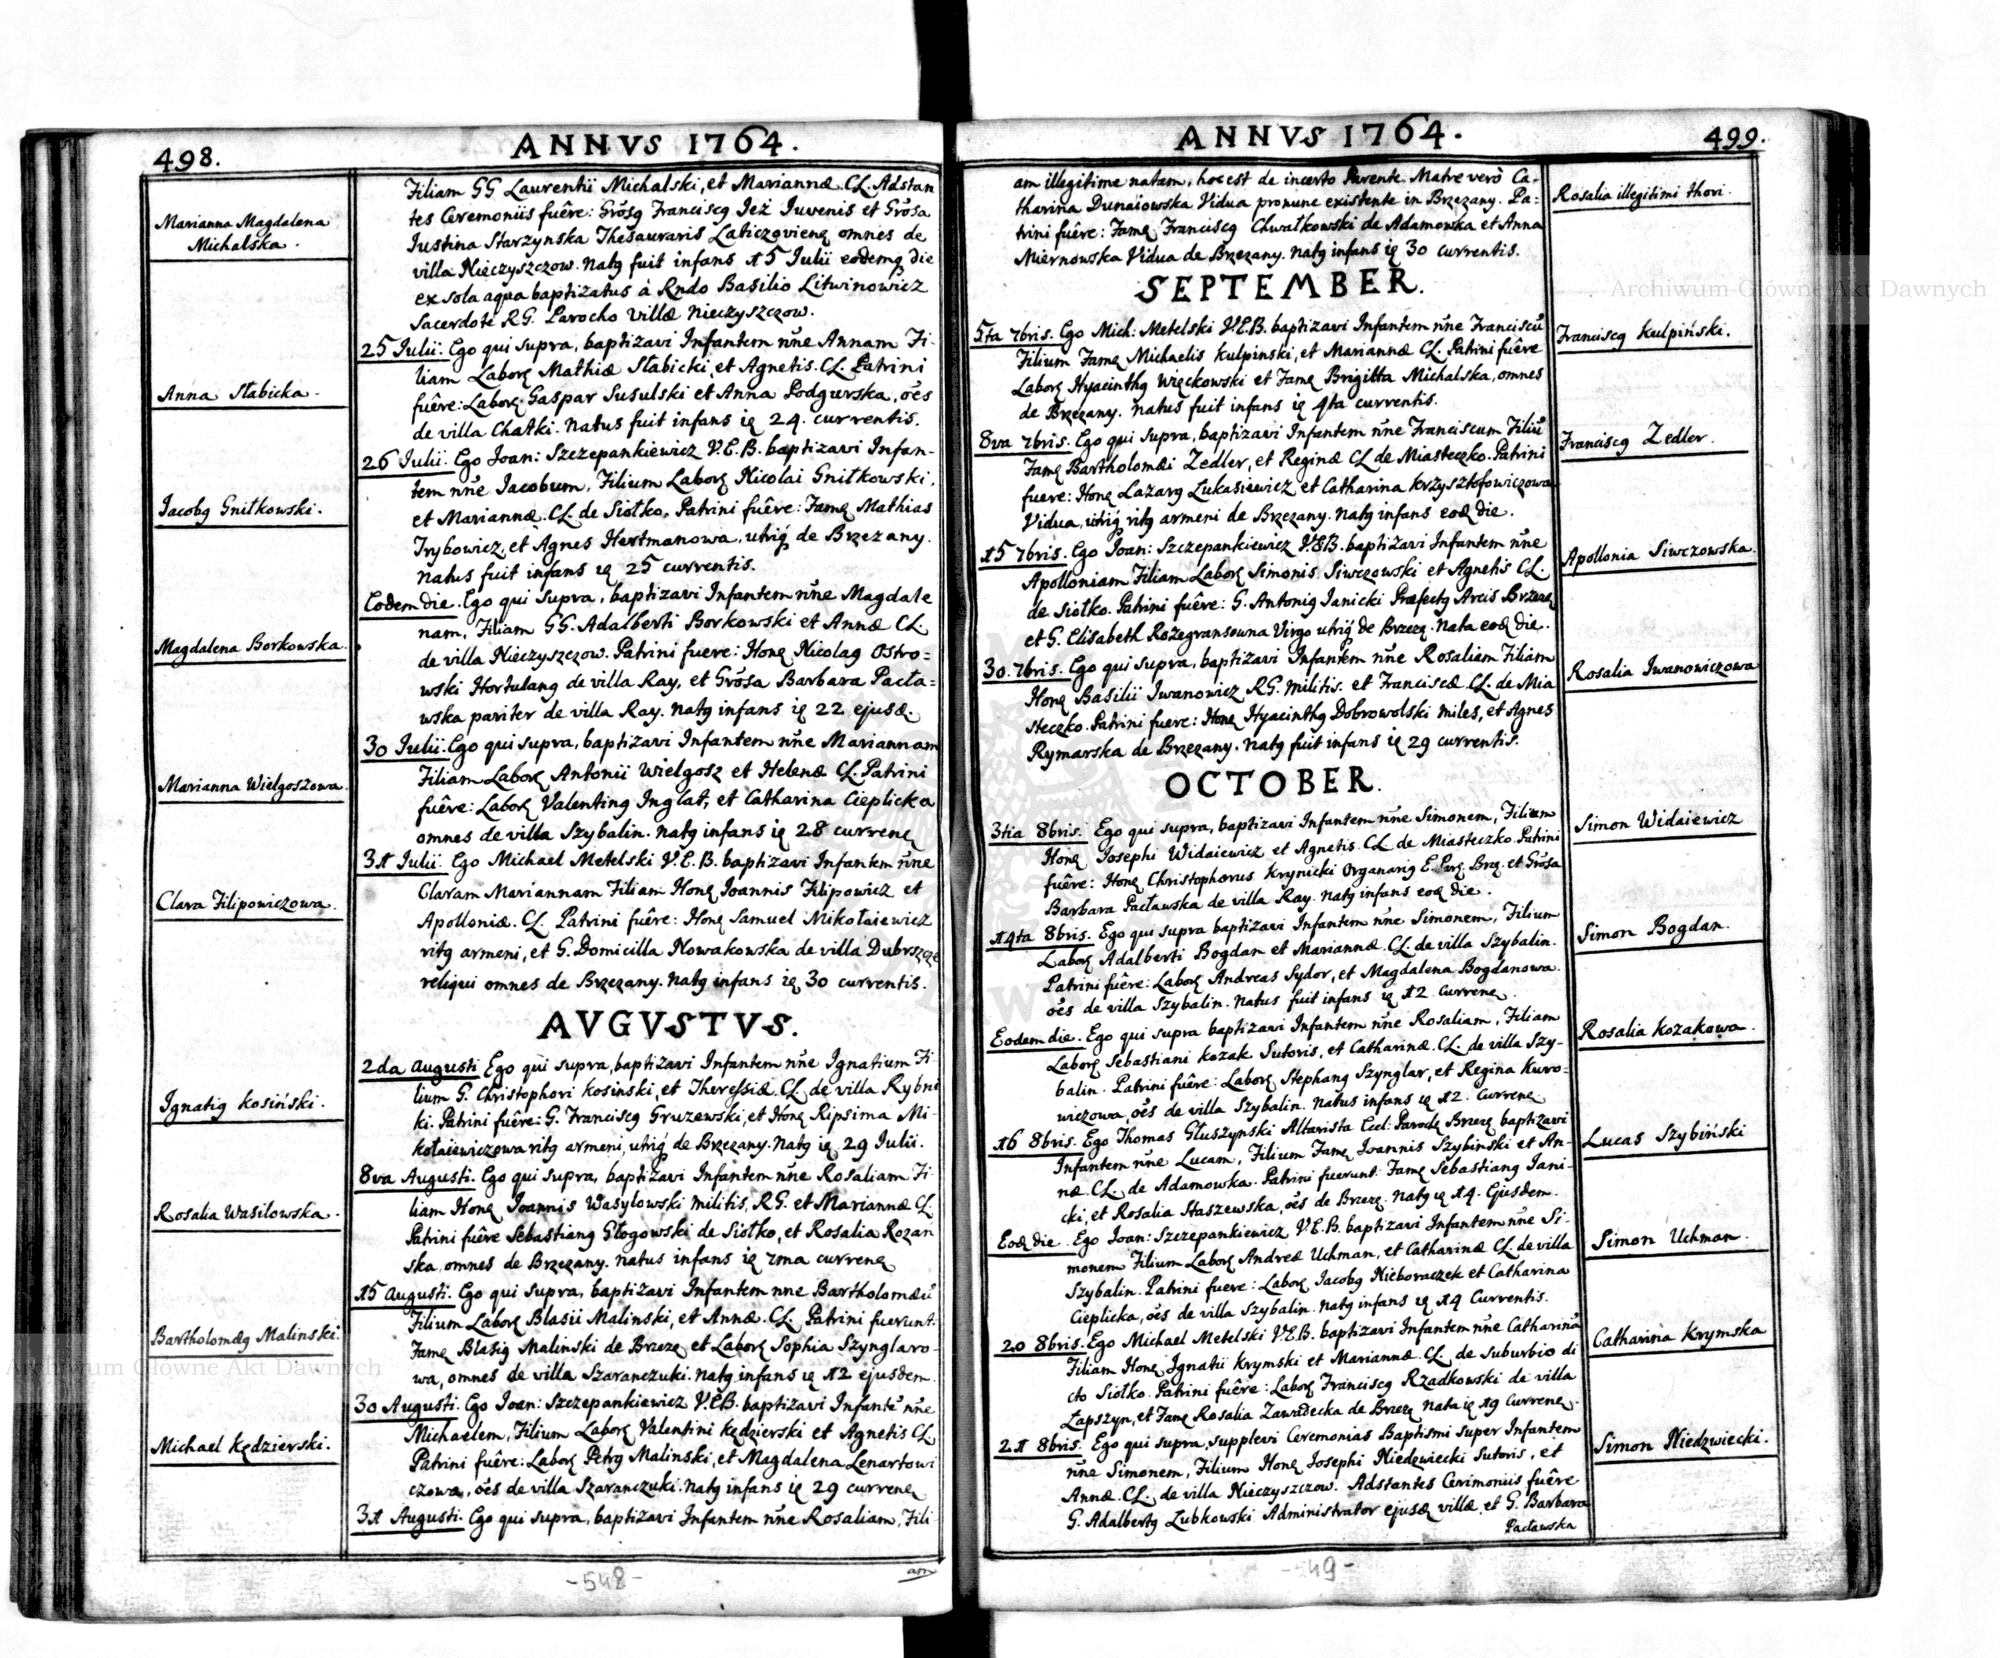 498.
ANNVS 1764.
Marianna Magdalena
Michalska.
Anna Słabicka.
Iacobg Gniłkowski.
Magdalena Borkowska.
Marianna Wielgoszowa
Clara Filipowiczowa.
Ignatig Kosiński.
Rosalia Wasilowska.
Bartholomæg Malinski.
Michael Kędzierski.
Filiam GG Laurentii Michalski, et Mariannæ CL. Adstan
tes Ceremoniis fuêre: Grōsg Franciscg Jeż Iuvenis et Grōsa
Iustina Starzynska Thesauraris omnes de
villa Nieczyszczow. Natg fuit infans 15 Iulii eodemq die
ex sola aqua baptizatus à Rndo Basilio Litwinowicz
Sacerdote RG. Parocho villæ Nieczyszczow.
25 Iulii. Ego qui supra, baptizavi Infantem nn̄e Annam Fi-
liam Labor Mathiæ Słabicki, et Agnetis. CL. Patrini
fuêre: Labor Gaspar Susulski et Anna Podgurska, oēs
de villa Chatki. Natus fuit infans ie 24. currentis.
26 Iulii. Ego Joan: Szczepankiewicz V.E.B. baptizavi Infan-
tem nn̄e Iacobum, Filium Labor Nicolai Gniłkowski,
et Mariannæ. CL. de Siołko. Patrini fuêre: Fam Mathias
Trybowicz, et Agnes Hertmanowa, utriq de Brzezany.
Natus fuit infans ie 25 currentis.
Eodem die. Ego qui supra, baptizavi Infantem nn̄e Magdale
nam, Filiam GG. Adalberti Borkowski et Annæ CL.
de villa Nieczyszczow. Patrini fuere: Hon Nicolag Ostro=
wski Hortulang de villa Ray, et Grōsa Barbara Pacła=
wska pariter de villa Ray. Natg infans ie 22 ejusd.
30 Iulii. Ego qui supra, baptizavi Infantem nn̄e Mariannam
Filiam Labor Antonii Wielgosz et Helenæ CL. Patrini
fuêre: Labor Valenting Inglat, et Catharina Cieplicka
omnes de villa Szybalin. Natg infans ie 28 curren
31 Iulii. Ego Michael Metelski V.E.B. baptizavi Infantem nn̄e
Claram Mariannam Filiam Hon Joannis Filipowicz et
Apolloniæ. CL. Patrini fuêre: Hon Samuel Mikołaiewicz
ritg armeni, et G. Domicilla Nowakowska de villa
reliqui omnes de Brzezany. Natg infans ie 30 currentis.
AVGVSTVS.
2da Augusti Ego qui supra, baptizavi Infantem nn̄e Ignatium Fi-
lium G. Christophori Kosinski, et Theressiæ CL. de villa Rybni
ki. Patrini fuêre: G. Franciscg Gruzewski, et Hon Ripsima Mi-
kołaiewiczowa ritg armeni, utriq de Brzezany. Natg ie 29 Iulii.
8va Augusti. Ego qui supra, baptizavi Infantem nn̄e Rosaliam Fi-
liam Hon Joannis Wasylowski militis, RG. et Mariannæ CL.
Patrini fuêre Sebastiang Głogowski de Siołko, et Rosalia Rozan
ska, omnes de Brzezany. Natus infans ie 7ma curren
15 Augusti. Ego qui supra, baptizavi Infantem nne Bartholomæū
Filium Labor Blasii Malinski, et Annæ. CL. Patrini fuerunt:
Fam Blasig Malinski de Brzez et Labor Sophia Szynglaro-
wa, omnes de villa Szaranczuki. Natg infans ie 12 ejusdem.
30 Augusti. Ego Joan: Szczepankiewicz V.E.B. baptizavi Infantē nn̄e
Michaelem, Filium Labor Valentini Kędzierski et Agnetis CL.
Patrini fuêre: Labor Petrg Malinski, et Magdalena Lenartowi
czowa, oēs de villa Szaranczuki. Natg infans ie 29 curren
31 Augusti. Ego qui supra, baptizavi Infantem nn̄e Rosaliam, Fili
am
-548-
ANNVS 1764.
499.
am illegitime natam, hoc est de incerto Parente. Matre verò Ca-
tharina Dunaiowska Vidua pronunc existente in Brzezany. Pa-
trini fuêre: Fam Franciscg Chwałkowski de Adamowka et Anna
Miernowska Vidua de Brzezany. Natg infans ie 30 currentis.
SEPTEMBER.
5ta 7bris. Ego Mich: Metelski V.E.B. baptizavi Infantem nn̄e Franciscū
Filium Fam Michaelis Kulpinski, et Mariannæ CL. Patrini fuêre
Labor Hyacinthg Więckowski et Fam Brigitta Michalska, omnes
de Brzezany. Natus fuit infans ie 4ta currentis.
8va 7bris. Ego qui supra, baptizavi Infantem nn̄e Franciscum Filiū
Fam Bartholomæi Zedler, et Reginæ CL de Miasteczko. Patrini
fuere: Hon Lazarg Lukasiewicz et Catharina Krzysztofowiczowa
Vidua, utriq ritg armeni de Brzezany. Natg infans eod die.
15 7bris. Ego Joan: Szczepankiewicz V.E.B. baptizavi Infantem nn̄e
Apolloniam Filiam Labor Simonis Siwczowski et Agnetis CL.
de Siołko. Patrini fuêre: G. Antonig Janicki Præfectg Arcis Brzez
et G. Elisabeth Rożegransowna Virgo utriq de Brzez. Nata eod die.
30. 7bris. Ego qui supra, baptizavi Infantem nn̄e Rosaliam Filiam
Hon Basilii Iwanowicz RG. militis. et Franciscæ CL. de Mia
steczko. Patrini fuere: Hon Hyacinthg Dobrowolski miles, et Agnes
Rymarska de Brzezany. Natg fuit infans ie 29 currentis.
OCTOBER.
3tia 8bris. Ego qui supra, baptizavi Infantem nn̄e Simonem, Filium
Hon Josephi Widaiewicz et Agnetis. CL de Miasteczko. Patrini
fuêre: Hon Christophorus Krynicki Organarig E. Par Brz. et Grōsa
Barbara Pacławska de villa Ray. Natg infans eod die.
14ta 8bris. Ego qui supra baptizavi Infantem nn̄e Simonem, Filium
Labor Adalberti Bogdan et Mariannæ. CL. de villa Szybalin.
Patrini fuêre: Labor Andreas Sydor, et Magdalena Bogdanowa.
oēs de villa Szybalin. Natus fuit infans ie 12 curren.
Eodem die. Ego qui supra baptizavi Infantem nn̄e Rosaliam, Filiam
Labor Sebastiani Kozak Sutoris, et Catharinæ. CL. de villa Szy-
balin. Patrini fuêre: Labor Stephang Szynglar, et Regina Kuro=
wiczowa oēs de villa Szybalin. Natus infans ie 12. Curren
16 8bris. Ego Thomas Głuszynski Altarista Eccl: Paroch Brzez baptizavi
Infantem nn̄e Lucam, Filium Fam Joannis Szybinski et An-
næ CL. de Adamowka. Patrini fuerunt. Fam Sebastiang Iani-
cki, et Rosalia Staszewska, oēs de Brzez. Natg ie 14. Ejusdem.
Eod die. Ego Joan: Szczepankiewicz V.E.B. baptizavi Infantem nn̄e Si-
monem Filium Labor Andreæ Uchman, et Catharinæ CL. de villa
Szybalin. Patrini fuere: Labor Jacobg Nieboraczek et Catharina
Cieplicka, oēs de villa Szybalin. Natg infans ie 14 Currentis.
20 8bris. Ego Michael Metelski V.E.B. baptizavi Infantem nn̄e Catharinā
Filiam Hon Ignatii Krymski et Mariannæ. CL. de suburbio di
cto Siołko. Patrini fuêre: Labor Franciscg Rzadkowski de villa
Lapszyn, et Fam Rosalia Zawadecka de Brzez Nata ie 19 Curren.
21 8bris. Ego qui supra, supplevi Ceremonias Baptismi super Infantem
nn̄e Simonem, Filium Hon Josephi Niedzwiecki Sutoris, et
Annæ. CL. de villa Nieczyszczow. Adstantes Cerimoniis fuêre
G. Adalbertg Lubkowski Administrator ejusd villæ, et G. Barbara
Pacławska
Rosalia illegitimi thori.
Franciscg Kulpiński.
Franciscg Zedler.
Apollonia Siwczowska.
Rosalia Iwanowiczowa
Simon Widaiewicz
Simon Bogdan.
Rosalia Kozakowa.
Lucas Szybiński
Simon Uchman.
Catharina Krymska
Simon Niedzwiecki.
-49-
Archiwum Główne Akt Dawnych
Archiwum Główne Akt Dawnych